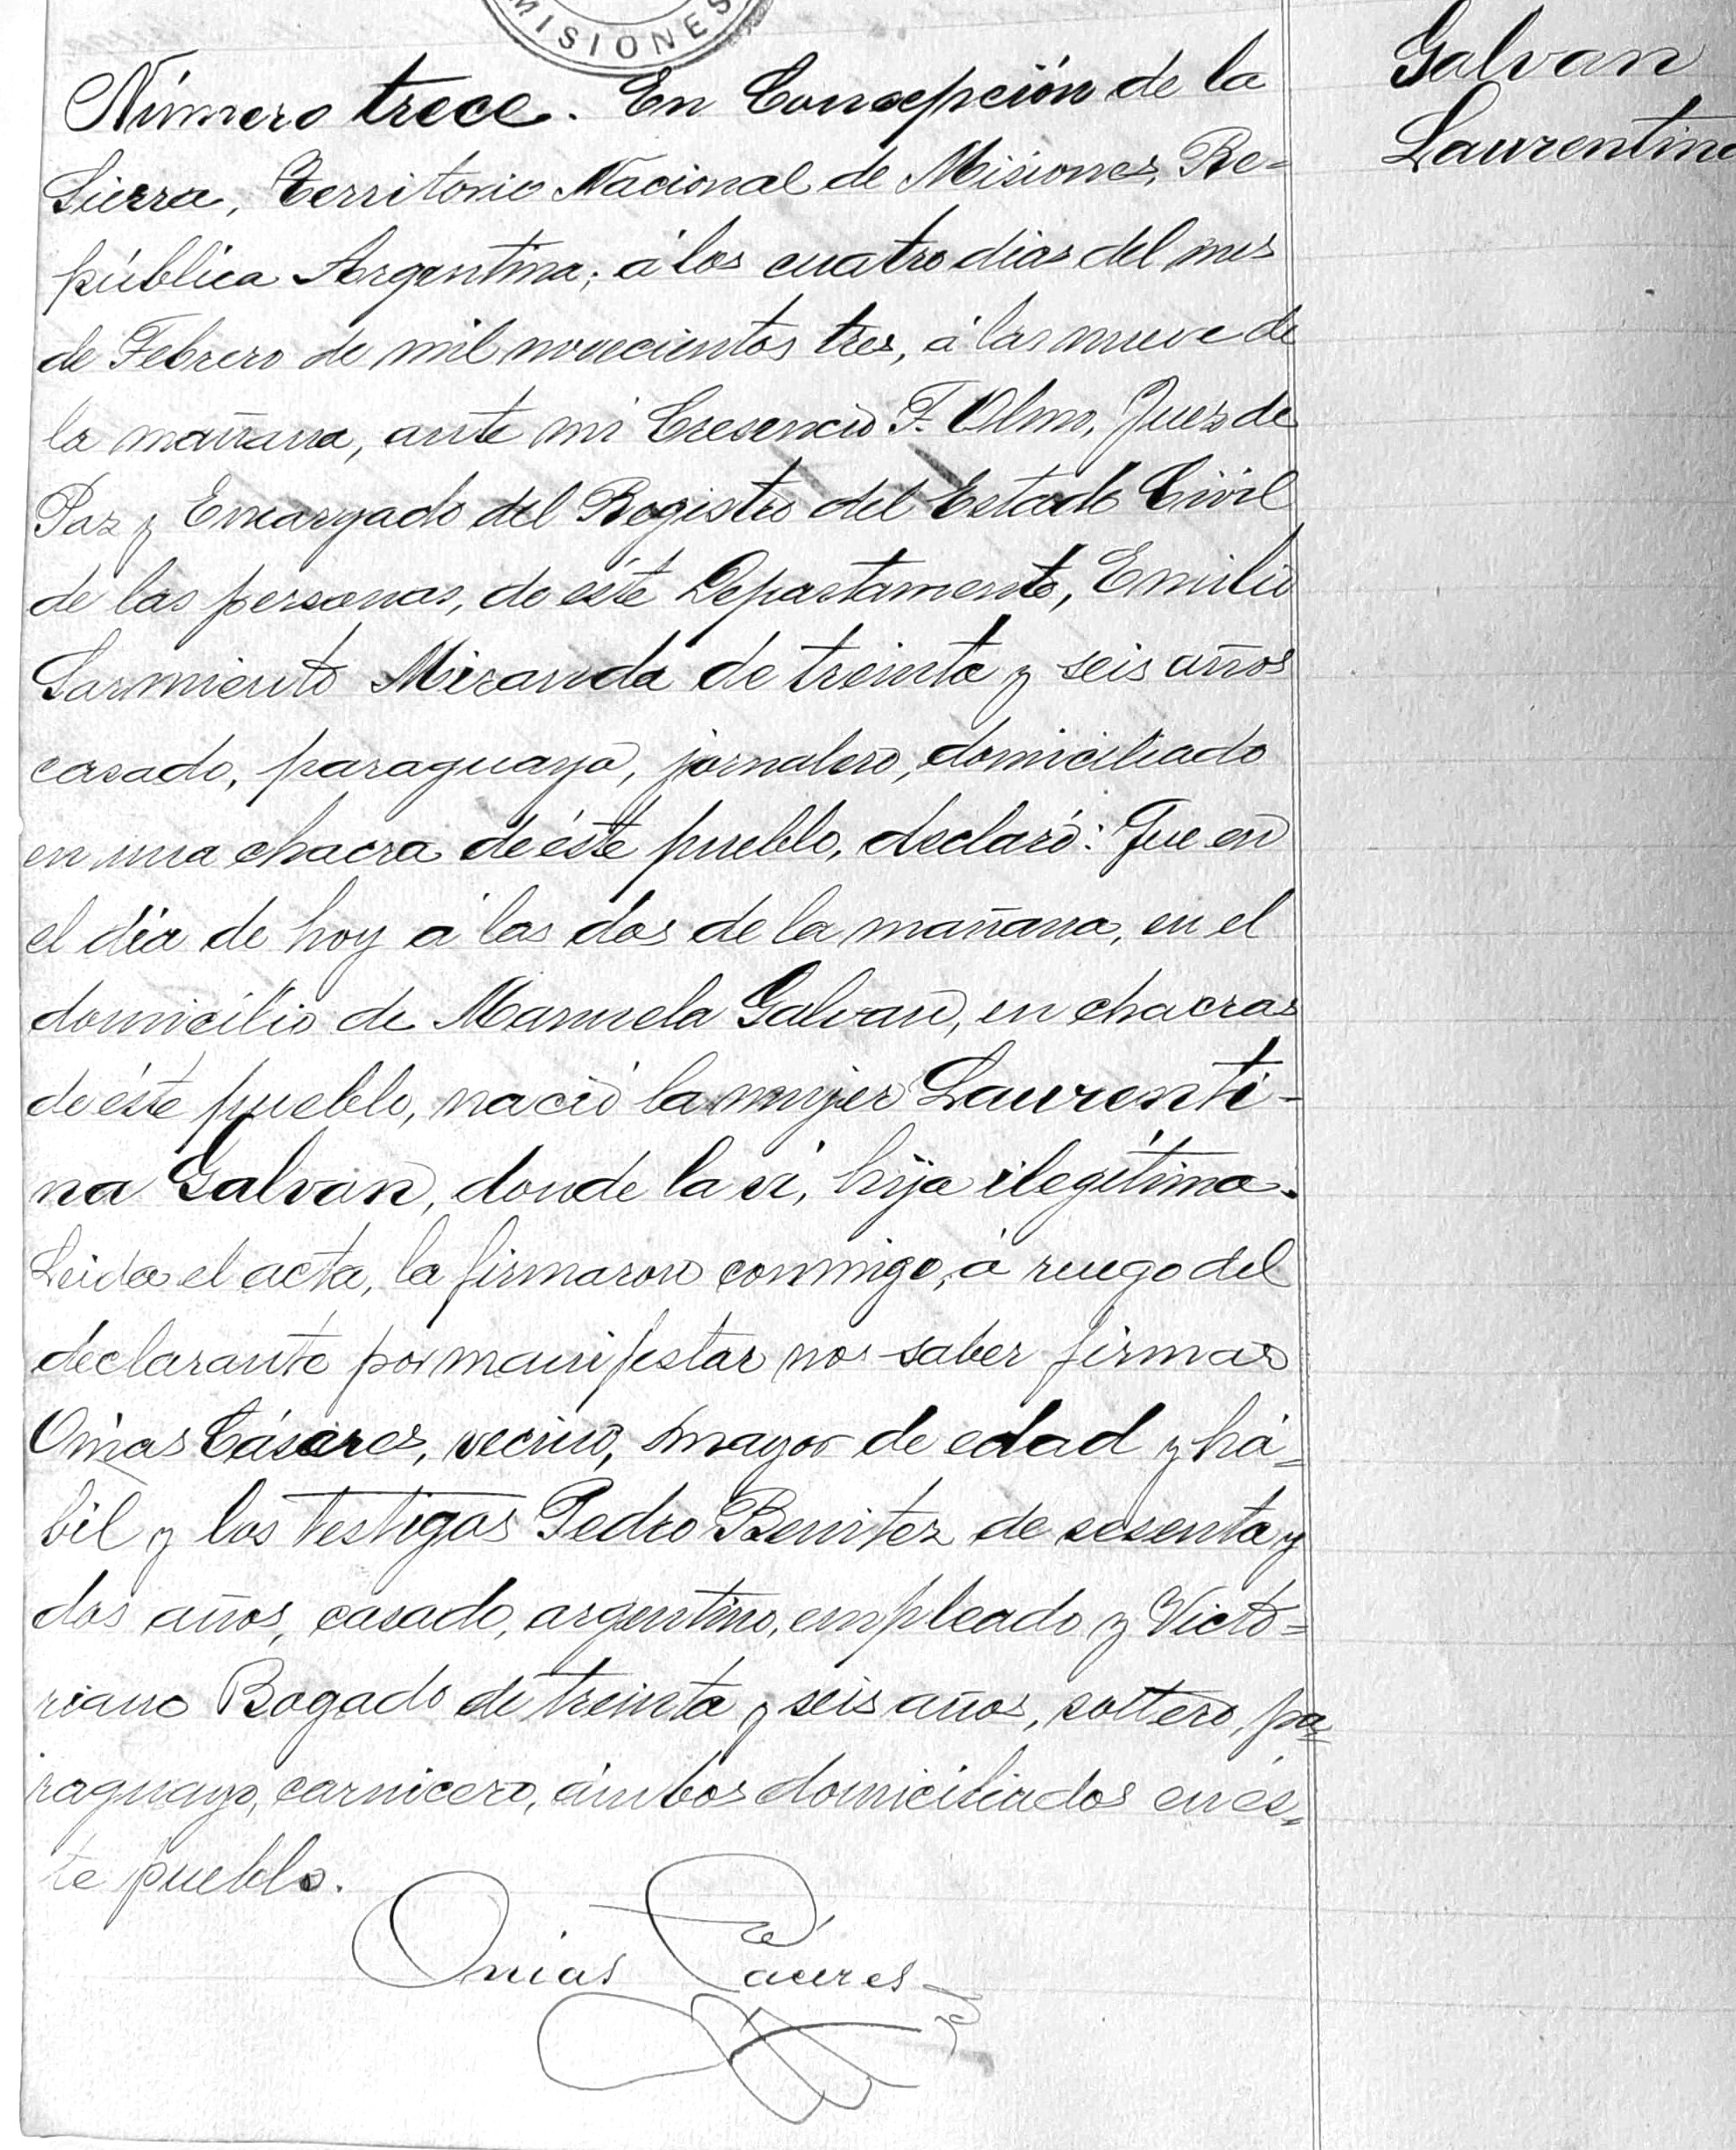 MISIONES
Número trece. En Concepción de la
Sierra, Territorio Nacional de Misiones, Re=
pública Argentina; á los cuatro dias del mes
de Febrero de mil novecientos tres, á las nueve de
la mañana, ante mi Cresencio F. Olmo, Juez de
Paz y Encargado del Registro del Estado Civil
de las personas, de éste Departamento, Emilio
Sarmiento Miranda de treinta y seis años
casado, paraguayo, jornalero, domiciliado
en una chacra de éste pueblo, declaró: Que en
el dia de hoy á las dos de la mañana, en el
domicilio de Manuela Galvan, en chacras
de éste pueblo, nació la mujer Laurenti-
na Galvan, donde la vi, hija ilegítima.
Leida el acta, la firmaron conmigo, á ruego del
declarante por manifestar no saber firmar
Onias Cáseres, vecino, mayor de edad y há=
bil y los testigos Pedro Benitez de sesenta y
dos años, casado, argentino, empleado y Victo=
riano Bogado de treinta y seis años, soltero, pa=
raguayo, carnicero, ámbos domiciliados en és=
te pueblo.
Onias Cáceres
Galvan
Laurentina